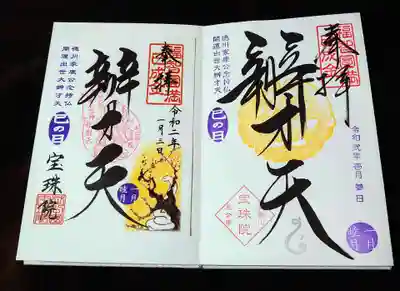 奉拝
令和弐年壱月
一月
睦月
辨才天
宝珠院
徳川家康公念持仏
開運出世大辨才天
巳の日
奉拝
令和二年
一月三日
一月
睦月
辨才天
徳川家康公念持仏
開運出世大辨才天
巳の日
宝珠院